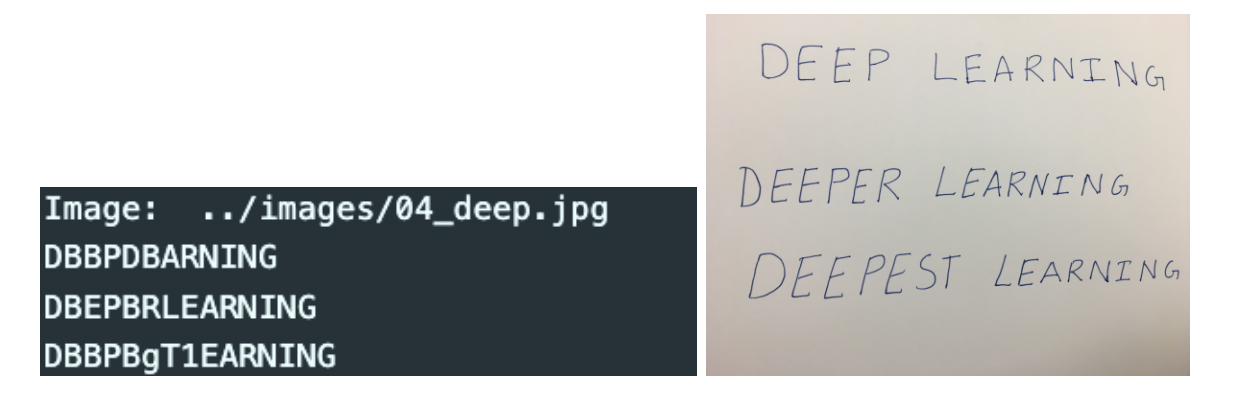 Image:  ../images/04_deep.jpg
DBBPDBARNING
DBEPBRLEARNING
DBBPBgT1EARNING
DEEP LEARNING
DEEPER LEARNING
DEEPEST LEARNING